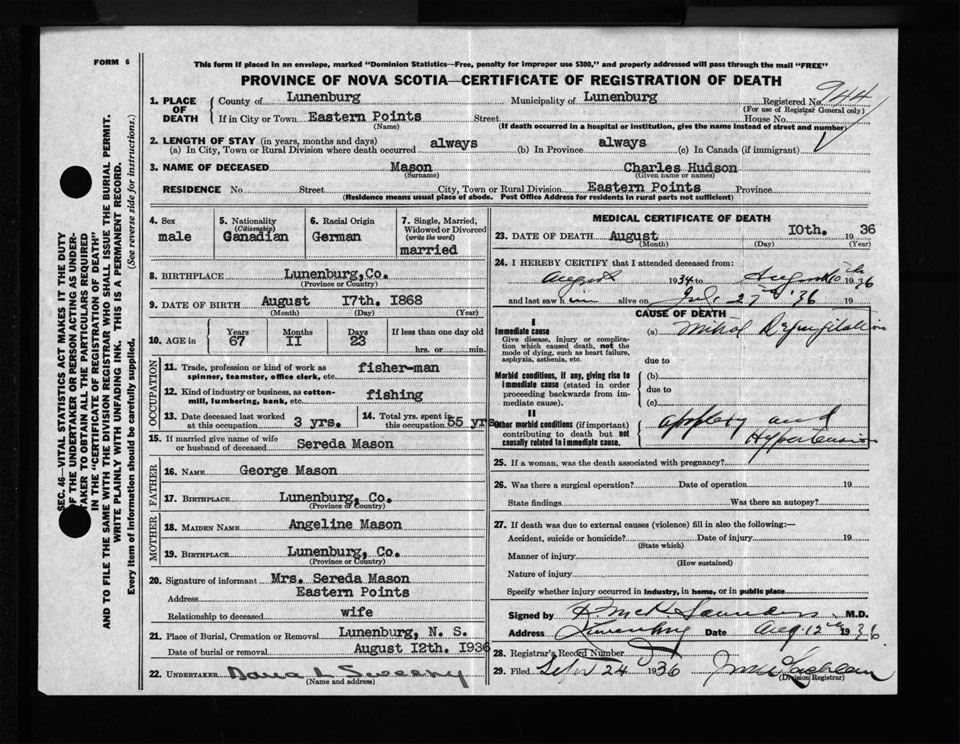 FORM 6
This form if placed in an envelope, marked "Dominion Statistics—Free, penalty for improper use $300," and properly addressed will pass through the mail "FREE"
PROVINCE OF NOVA SCOTIA—CERTIFICATE OF REGISTRATION OF DEATH
SEC. 46—VITAL STATISTICS ACT MAKES IT THE DUTY
OF THE UNDERTAKER OR PERSON ACTING AS UNDER-
TAKER TO OBTAIN ALL THE PARTICULARS REQUIRED
IN THE "CERTIFICATE OF REGISTRATION OF DEATH"
AND TO FILE THE SAME WITH THE DIVISION REGISTRAR WHO SHALL ISSUE THE BURIAL PERMIT.
WRITE PLAINLY WITH UNFADING INK. THIS IS A PERMANENT RECORD.
Every item of information should be carefully supplied. (See reverse side for instructions.)
1. PLACE OF DEATH
County of Lunenburg Municipality of Lunenburg Registered No. 944
(For use of Registrar General only)
If in City or Town Eastern Points Street House No.
(Name) (If death occurred in a hospital or institution, give the name instead of street and number)
2. LENGTH OF STAY (in years, months and days)
(a) In City, Town or Rural Division where death occurred always (b) In Province always (c) In Canada (if immigrant)
3. NAME OF DECEASED Mason Charles Hudson
(Surname) (Given name or names)
RESIDENCE No. Street City, Town or Rural Division Eastern Points Province
(Residence means usual place of abode. Post Office Address for residents in rural parts not sufficient)
4. Sex
male
5. Nationality
(Citizenship)
Canadian
6. Racial Origin
German
7. Single, Married,
Widowed or Divorced
(write the word)
married
8. BIRTHPLACE Lunenburg,Co.
(Province or Country)
9. DATE OF BIRTH August 17th. 1868
(Month) (Day) (Year)
10. AGE in
Years Months Days If less than one day old
67 II 23 hrs. or min.
OCCUPATION
11. Trade, profession or kind of work as
spinner, teamster, office clerk, etc. fisher-man
12. Kind of industry or business, as cotton-
mill, lumbering, bank, etc. fishing
13. Date deceased last worked
at this occupation. 3 yrs.
14. Total yrs. spent in
this occupation. 55 yrs
15. If married give name of wife
or husband of deceased Sereda Mason
FATHER
16. NAME George Mason
17. BIRTHPLACE Lunenburg, Co.
(Province or Country)
MOTHER
18. MAIDEN NAME Angeline Mason
19. BIRTHPLACE Lunenburg, Co.
(Province or Country)
20. Signature of informant Mrs. Sereda Mason
Address Eastern Points
Relationship to deceased wife
21. Place of Burial, Cremation or Removal Lunenburg, N. S.
Date of burial or removal August 12th. 1936
22. UNDERTAKER Dana L Sweeny
(Name and address)
MEDICAL CERTIFICATE OF DEATH
23. DATE OF DEATH August 10th. 1936
(Month) (Day) (Year)
24. I HEREBY CERTIFY that I attended deceased from:
August 1934 to August 10th 1936
and last saw him alive on July 27th '36 19
CAUSE OF DEATH
I
Immediate cause
Give disease, injury or complica-
tion which caused death, not the
mode of dying, such as heart failure,
asphyxia, asthenia, etc.
(a) Mitral Regurgitation
due to
Morbid conditions, if any, giving rise to
immediate cause (stated in order
proceeding backwards from im-
mediate cause).
(b)
due to
(c)
II
Other morbid conditions (if important)
contributing to death but not
causally related to immediate cause.
apoplexy and
Hypertension
25. If a woman, was the death associated with pregnancy?
26. Was there a surgical operation? Date of operation 19
State findings Was there an autopsy?
27. If death was due to external causes (violence) fill in also the following:—
Accident, suicide or homicide? Date of injury 19
(State which)
Manner of injury
(How sustained)
Nature of injury
Specify whether injury occurred in industry, in home, or in public place
Signed by Saunders M.D.
Address Lunenburg Date Aug. 12th 1936
28. Registrar's Record Number
29. Filed Sept 24 1936
(Division Registrar)